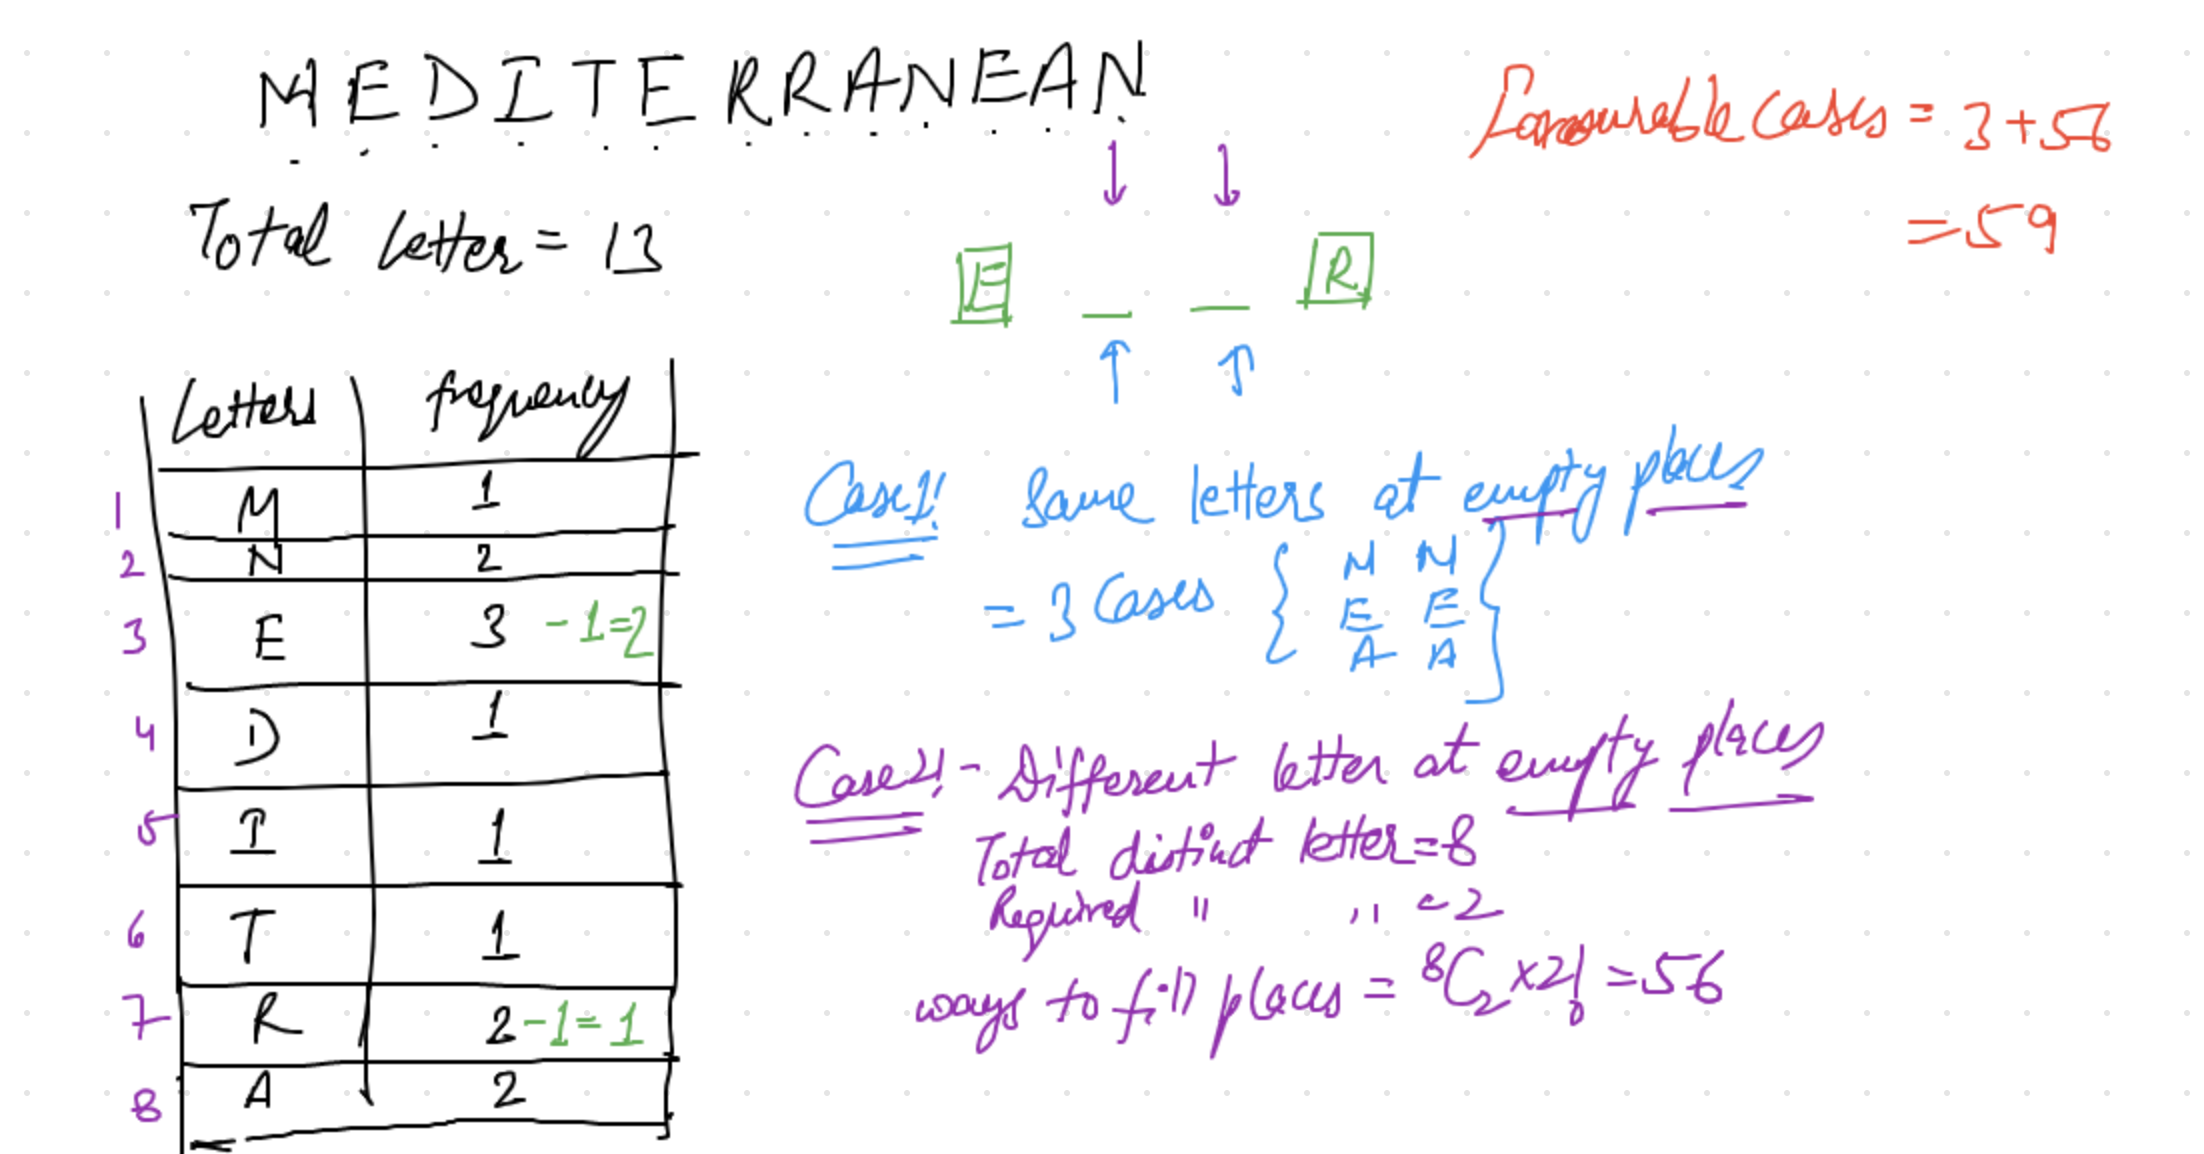 MEDITERRANEAN
Total letter = 13
Letters frequency
1 M 1
2 N 2
3 E 3 -1=2
4 D 1
5 I 1
6 T 1
7 R 2 -1=1
8 A 2
↓ ↓
E _ _ R
↑ ↑
Case1! Same letters at empty places
= 3 Cases { N N
E E
A A }
Case2!- Different letter at empty places
Total distinct letter = 8
Required " " = 2
ways to fill places = ⁸C₂ x2! = 56
Favourable Cases = 3+56
= 59